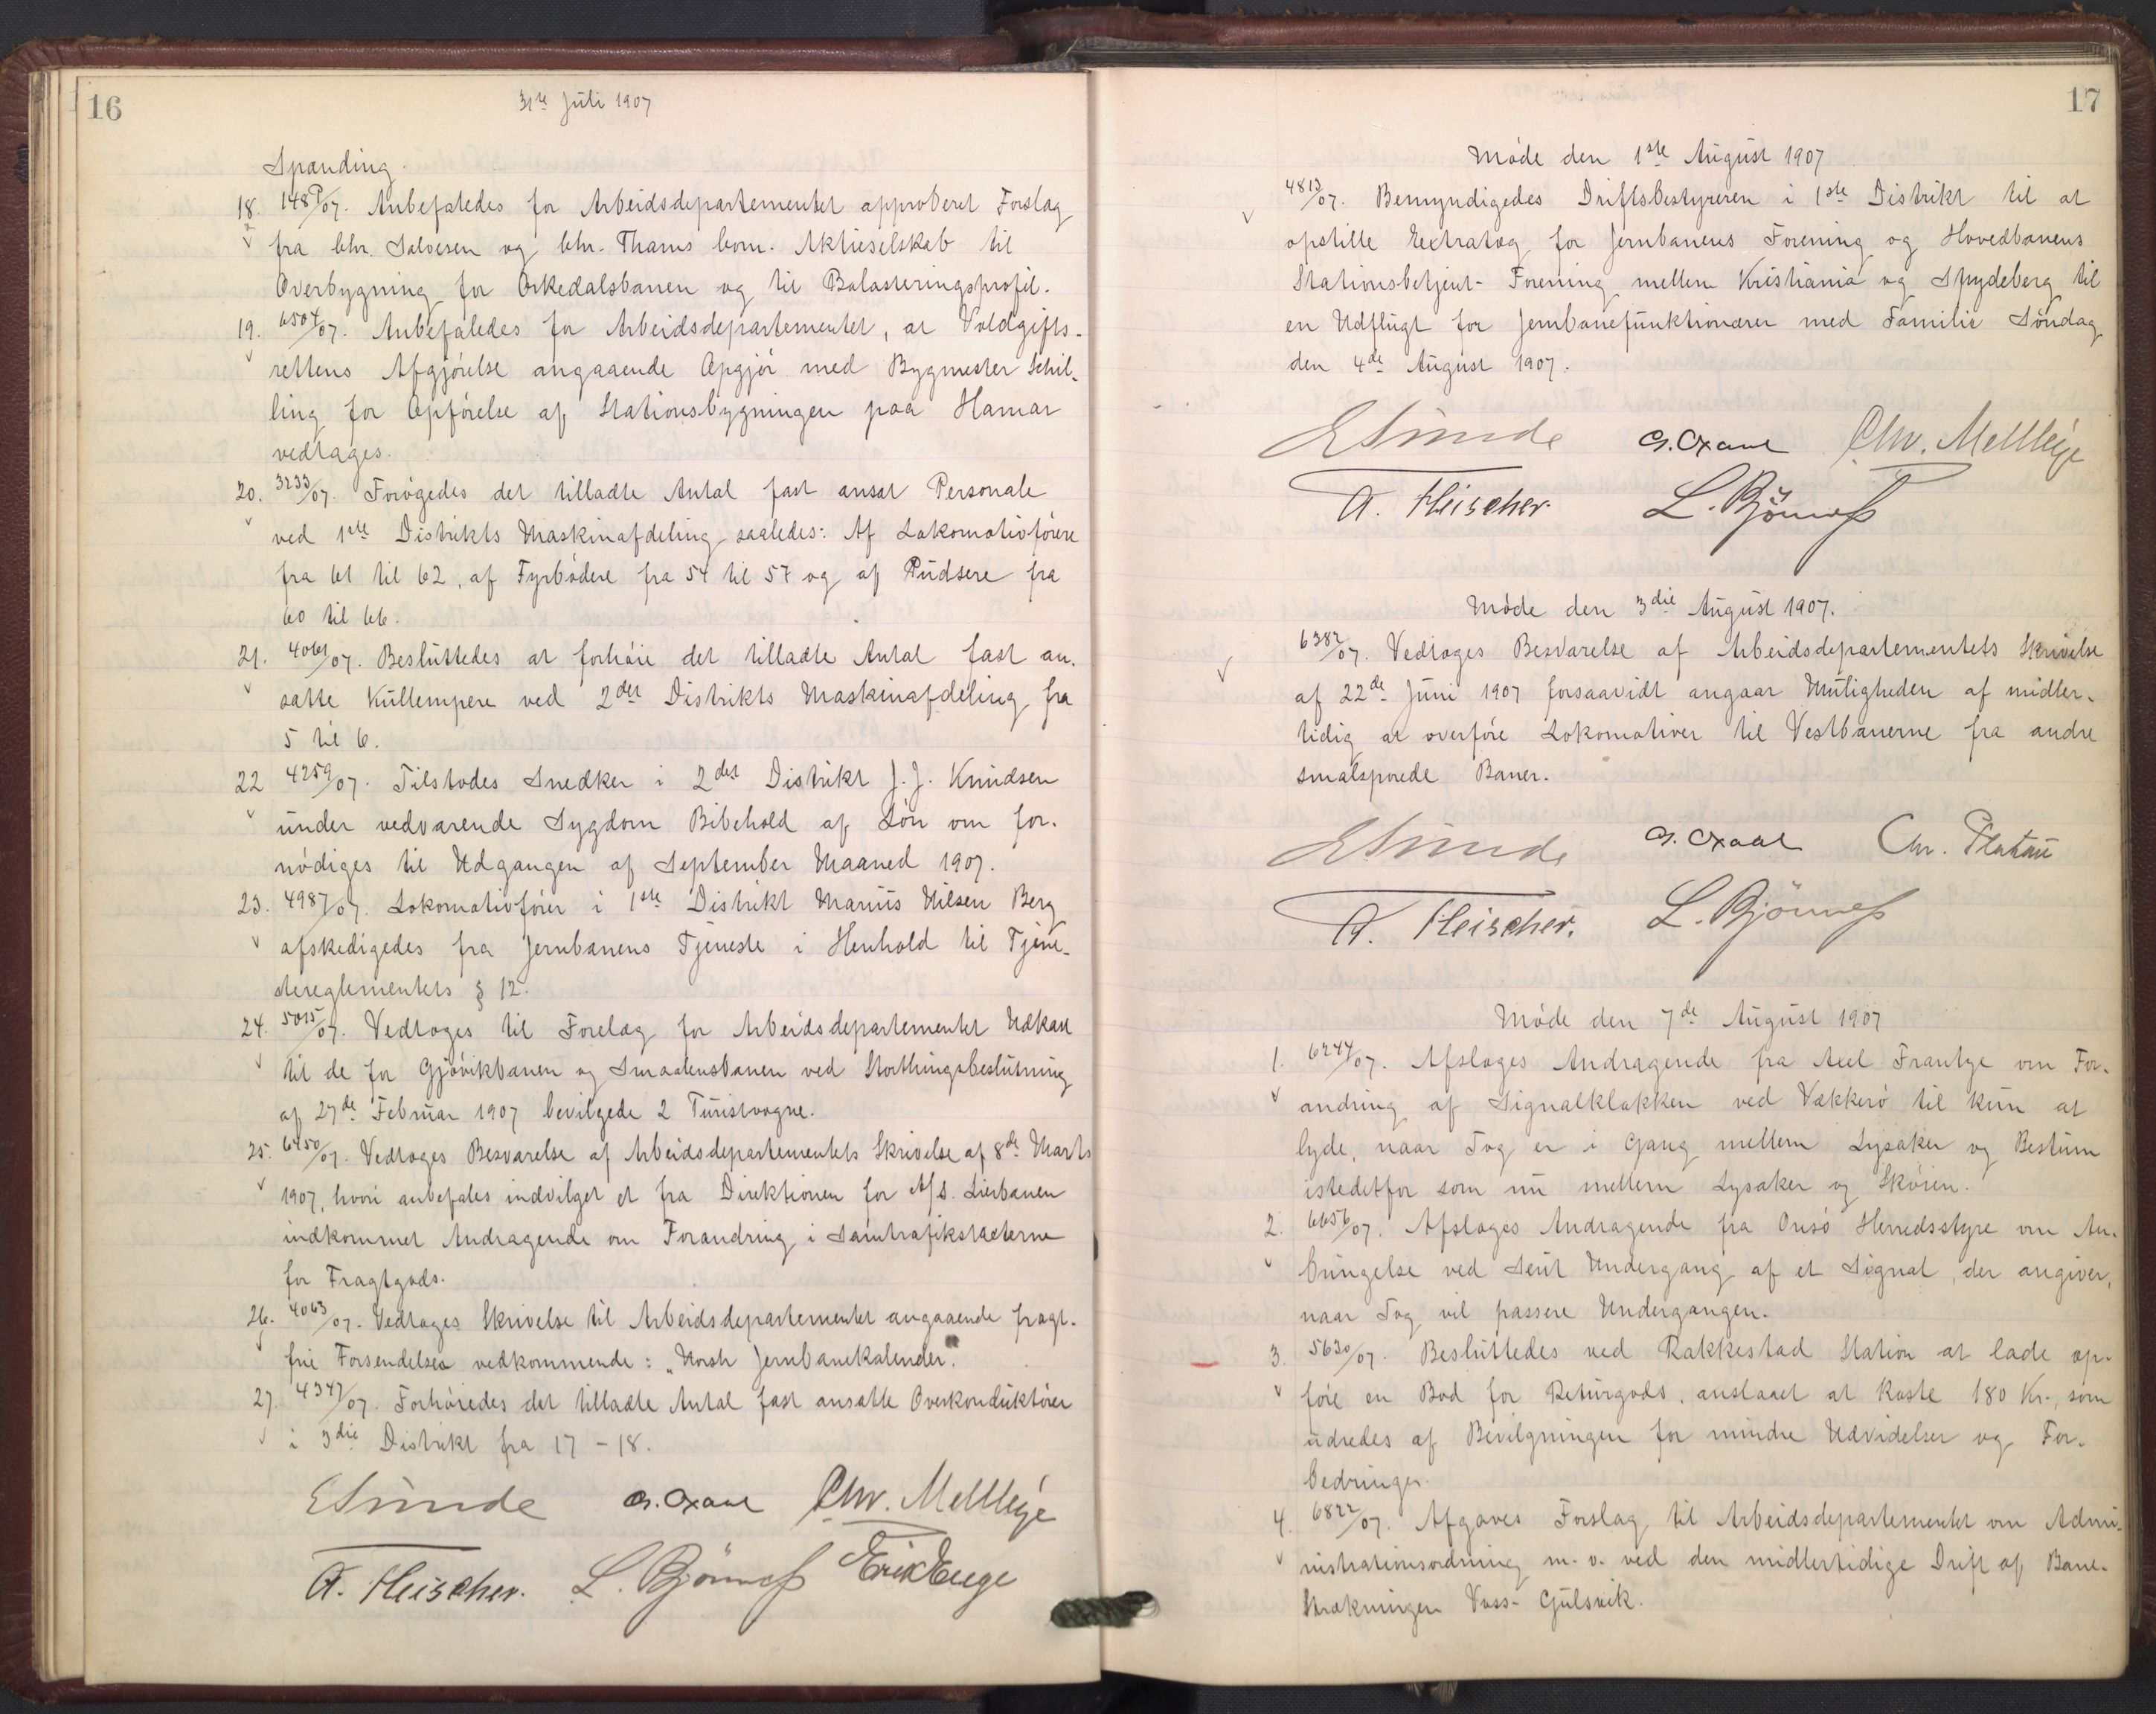 16
31te Juli 1907
Spanding.
18. 148P/07. Anbefaledes for Arbeidsdepartementet approberet Forslag
fra Chr. Salvesen og Chr. Thams Com. Aktieselskab til
Overbygning for Orkedalsbanen og til Balasteringsprofil.
19. 6504/07. Anbefaledes for Arbeidsdepartementet, at Voldgifts-
rettens Afgjörelse angaaende Opgjör med Bygmester Schil-
ling for Opförelse af Stationsbygningen paa Hamar
vedtages.
20. 3233/07. Forögedes det tilladte Antal fast ansat Personale
ved 1ste Distrikts Maskinafdeling saaledes: Af Lokomotivförere
fra 61 til 62, af Fyrbödere fra 54 til 57 og af Pudsere fra
60 til 66.
21. 4061/07. Besluttedes at forhöie det tilladte Antal fast an-
satte Kullempere ved 2det Distrikts Maskinafdeling fra
5 til 6.
22 4259/07. Tilstodes Snedker i 2det Distrikt J. J. Knudsen
under vedvarende Sygdom Bibehold af Lön om for-
nödiges til Udgangen af September Maaned 1907.
23. 4987/07. Lokomotivförer i 1ste Distrikt Marius Nilsen Berg
afskedigedes fra Jernbanens Tjeneste i Henhold til Tjene-
stereglementets § 12.
24. 5015/07. Vedtoges til Forelæg for Arbeidsdepartementet Udkast
til de for Gjövikbanen og Smaalensbanen ved Storthingsbeslutning
af 27de Februar 1907 bevilgede 2 Turistvogne.
25. 6450/07. Vedtoges Besvarelse af Arbeidsdepartementets Skrivelse af 8de Marts
1907, hvori anbefales indvilget et fra Direktionen for A/S. Lierbanen
indkommet Andragende om Forandring i Samtrafikstaxterne
for Fragtgods.
26. 4063/07. Vedtoges Skrivelse til Arbeidsdepartementet angaaende fragt-
frie Forsendelser vedkommende: „Norsk Jernbanekalender".
27. 4347/07. Forhöiedes det tilladte Antal fast ansatte Overkonduktörer
i 3die Distrikt fra 17 - 18.
E Sunde G. Oxaal Chr. Mellbye
A. Fleischer. L. Björness Erik Enge
17
Möde den 1ste August 1907
4813/07. Bemyndigedes Driftsbestyreren i 1ste Distrikt til at
opstille Extratog for Jernbanens Forening og Hovedbanens
Stationsbetjent- Forening mellem Kristiania og Spydeberg til
en Udflugt for Jernbanefunktionærer med Familie Söndag
den 4de August 1907.
E Sunde G. Oxaal Chr. Mellbye
A. Fleischer. L. Björness
Möde den 3die August 1907.
6382/07. Vedtoges Besvarelse af Arbeidsdepartementets Skrivelse
af 22de Juni 1907 forsaavidt angaar Muligheden af midler-
tidig at overföre Lokomotiver til Vestbanerne fra andre
smalsporede Baner.
E Sunde G. Oxaal Chr. Platou
A. Fleischer. L. Björness
Möde den 7de August 1907
1. 6244/07. Afsloges Andragende fra Axel Frantze om For-
andring af Signalklokken ved Vækkerö til kun at
lyde, naar Tog er i Gang mellem Lysaker og Bestum
istedetfor som nu mellem Lysaker og Sköien.
2. 6656/07. Afsloges Andragende fra Onsö Herredsstyre om An-
bringelse ved Seut Undergang af et Signal, der angiver,
naar Tog vil passere Undergangen.
3. 5630/07. Besluttedes ved Rakkestad Station at lade op-
före en Bod for Returgods, anslaaet at koste 180 Kr., som
udredes af Bevilgningen for mindre Udvidelser og For-
bedringer.
4. 6822/07. Afgaves Forslag til Arbeidsdepartementet om Admi-
nistrationsordning m. v. ved den midlertidige Drift af Bane-
strækningen Voss- Gulsvik.